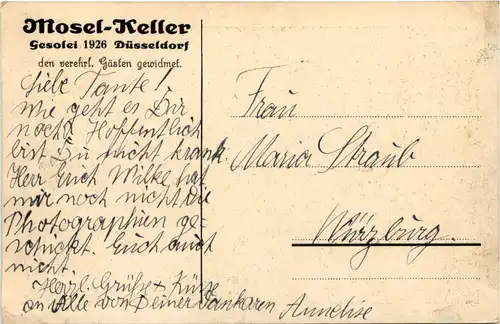 Mosel-Keller
Gesolei 1926 Düsseldorf
den verehrl. Gästen gewidmet.
Liebe Tante!
Wie geht es Dir
noch? Hoffentlich
bist Du nicht krank.
Herr Erich Wilke hat
mir noch nicht die
Photographien ge-
schickt. Euch auch
nicht.
Herzl. Grüße + Küsse
an Alle von Deiner dankbaren Annelise
Frau
Maria Straub
Würzburg.